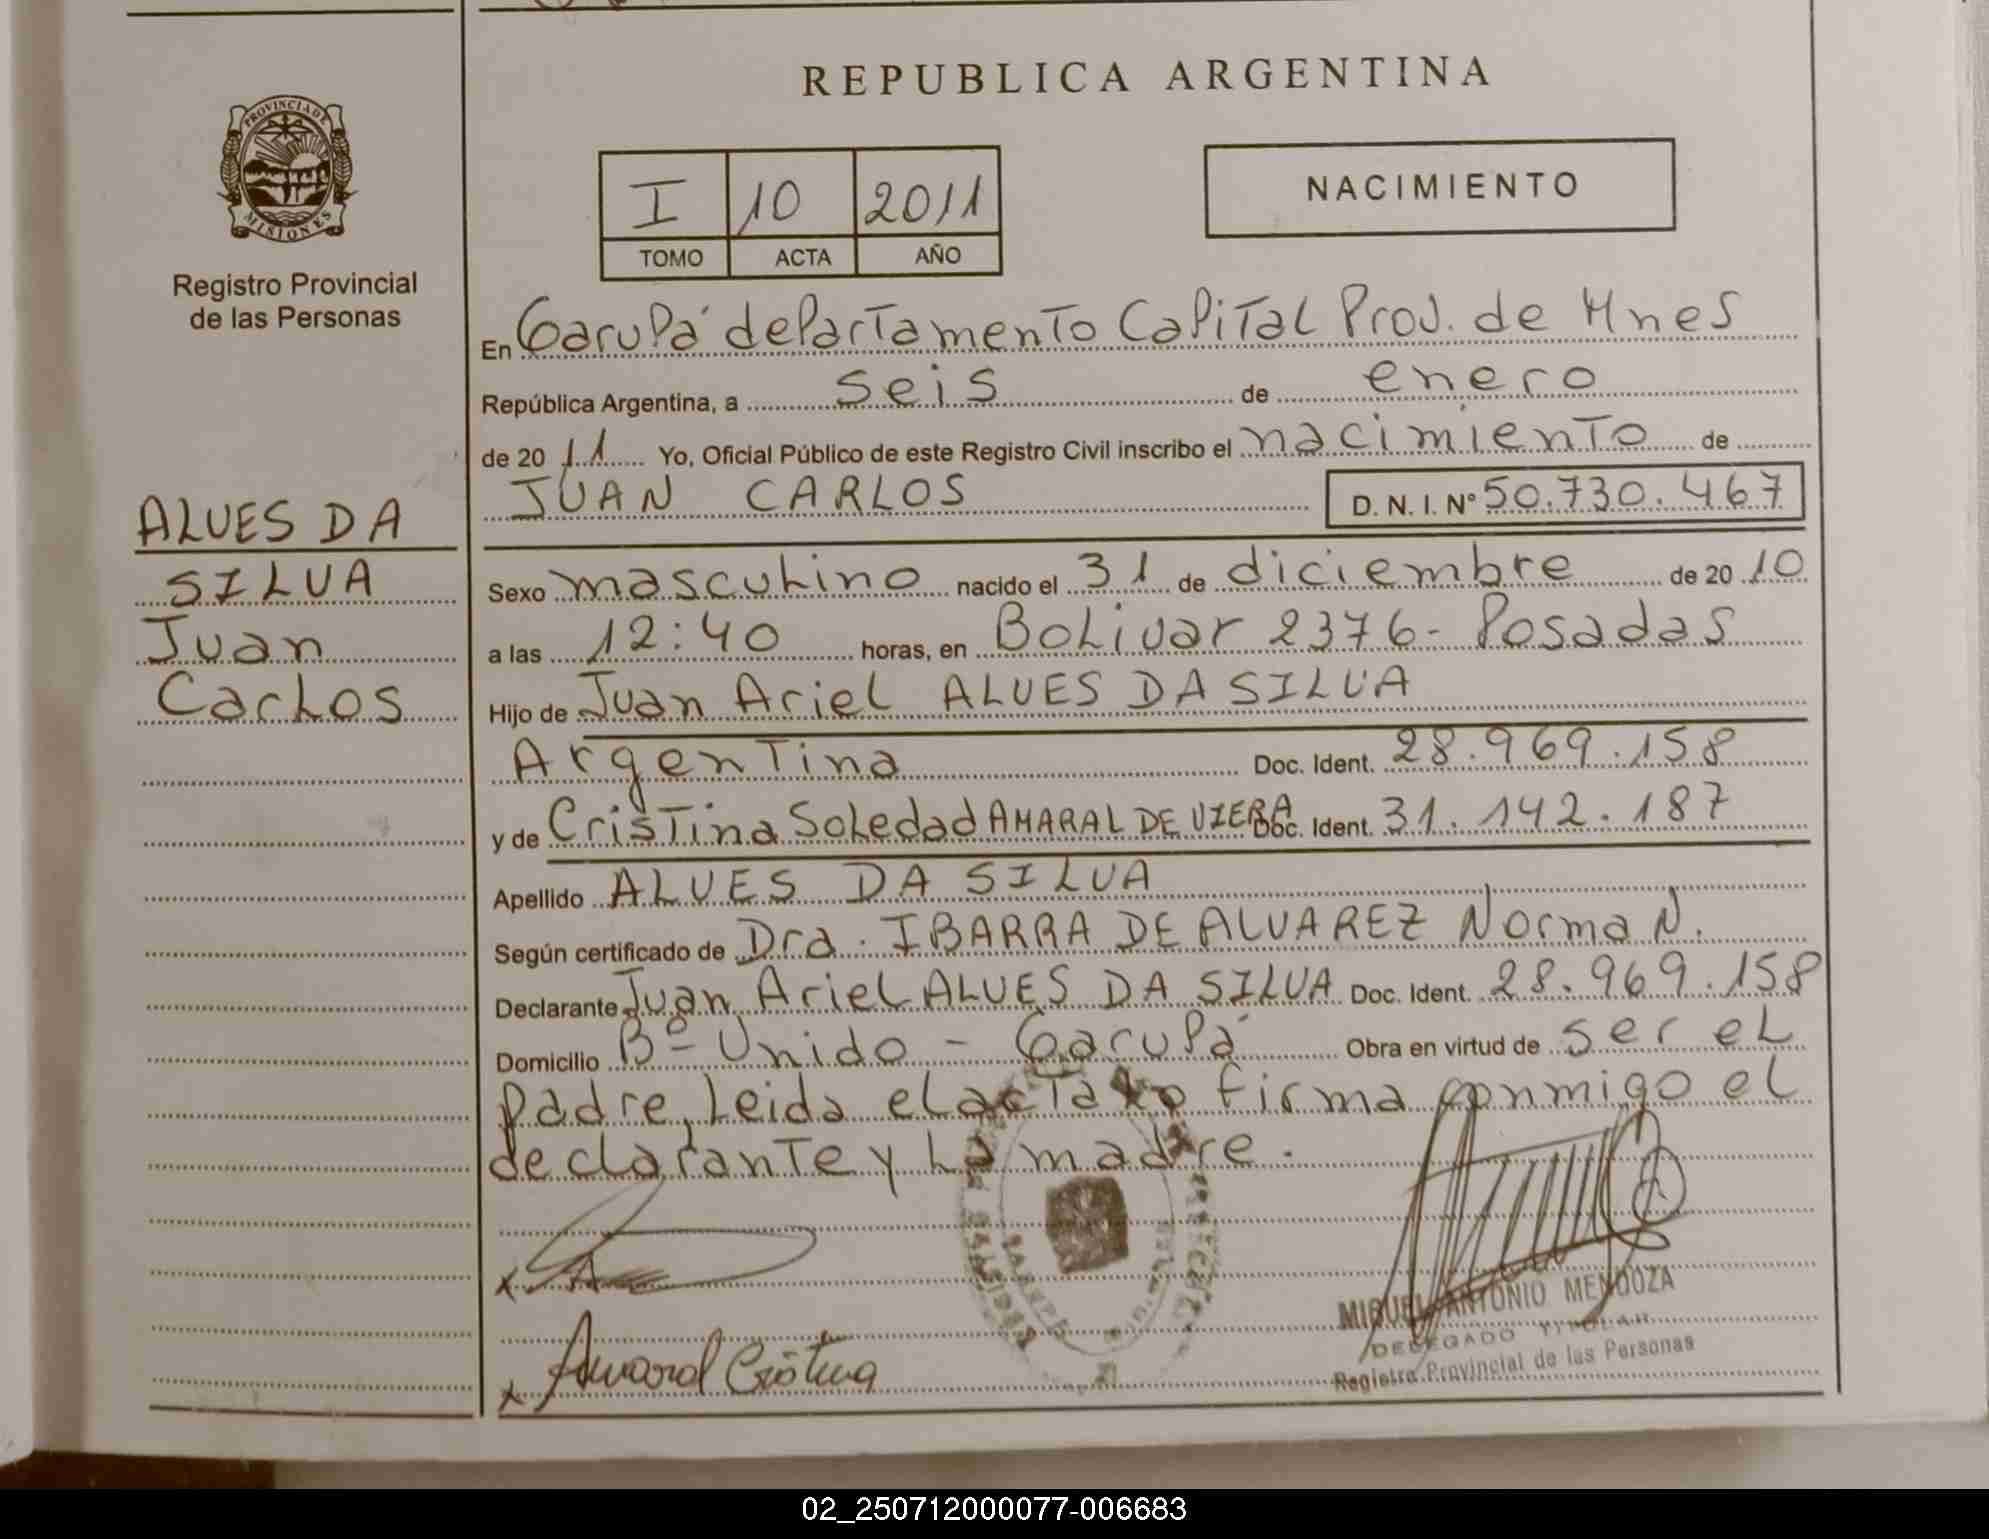 REPUBLICA ARGENTINA
PROVINCIA DE
MISIONES
Registro Provincial
de las Personas
I 10 2011
TOMO ACTA AÑO
NACIMIENTO
En Garupá departamento Capital Prov. de Mnes
República Argentina, a seis de enero
de 2011 Yo, Oficial Público de este Registro Civil inscribo el nacimiento de
JUAN CARLOS D. N. I. Nº 50.730.467
ALVES DA
SILVA
Juan
Carlos
Sexo masculino nacido el 31 de diciembre de 2010
a las 12:40 horas, en Bolivar 2376- Posadas
Hijo de Juan Ariel ALVES DA SILVA
Argentina Doc. Ident. 28.969.158
y de Cristina Soledad AMARAL DE VIERA Doc. Ident. 31.142.187
Apellido ALVES DA SILVA
Según certificado de Dra. IBARRA DE ALVAREZ Norma N.
Declarante Juan Ariel ALVES DA SILVA Doc. Ident. 28.969.158
Domicilio Bº- Unido - Garupá Obra en virtud de ser el
padre, leida el acta lo firma conmigo el
declarante y la madre.
MIGUEL ANTONIO MENDOZA
DELEGADO TITULAR
Registro Provincial de las Personas
x
x Amaral Cristina
02_250712000077-006683